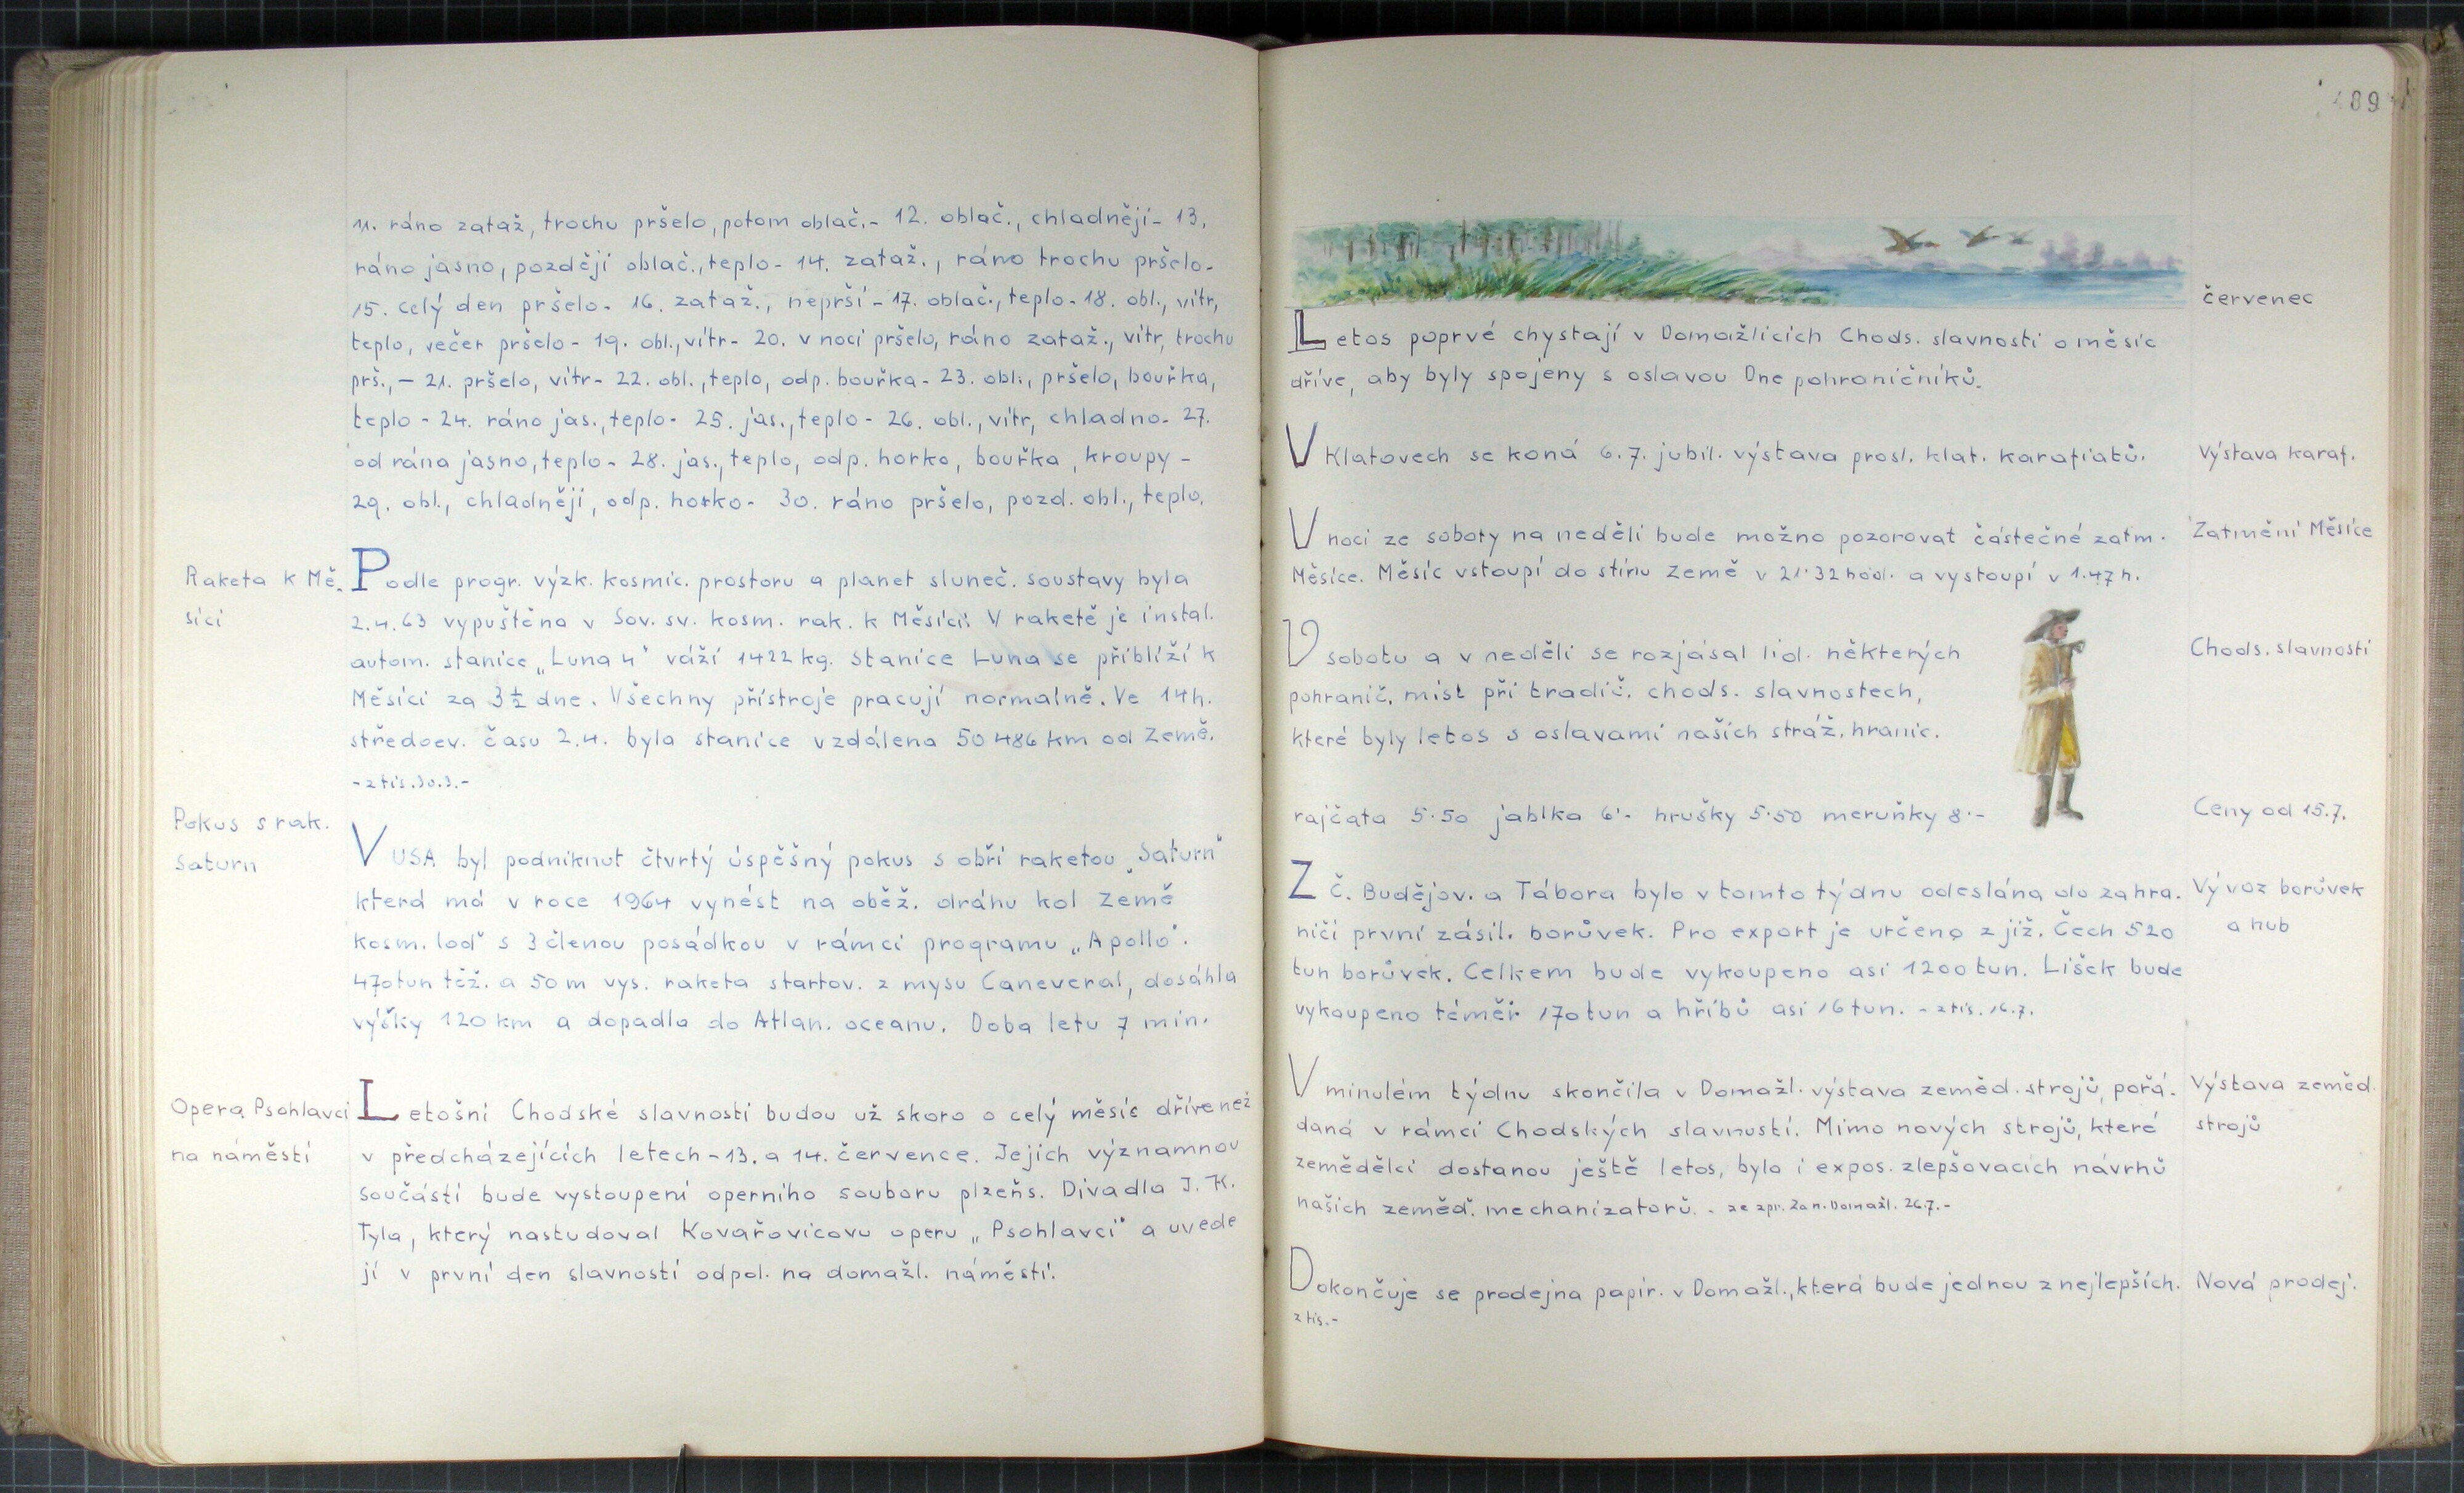 11. ráno zataž, trochu pršelo, potom oblač.- 12. oblač., chladněji- 13.
ráno jasno, později oblač., teplo- 14. zataž., ráno trochu pršelo-
15. celý den pršelo- 16. zataž., neprší- 17. oblač., teplo- 18. obl., vítr,
teplo, večer pršelo- 19. obl., vítr- 20. v noci pršelo, ráno zataž., vítr, trochu
prš.,- 21. pršelo, vítr- 22. obl., teplo, odp. bouřka- 23. obl., pršelo, bouřka,
teplo- 24. ráno jas., teplo- 25. jas., teplo- 26. obl., vítr, chladno- 27.
od rána jasno, teplo- 28. jas., teplo, odp. horko, bouřka, kroupy-
29. obl., chladněji, odp. horko- 30. ráno pršelo, pozd. obl., teplo.
Raketa k Mě-
síci
Podle progr. výzk. kosmic. prostoru a planet sluneč. soustavy byla
2.4.63 vypuštěna v Sov. sv. kosm. rak. k Měsíci. V raketě je instal.
autom. stanice „Luna 4" váží 1422 kg. Stanice Luna se přiblíží k
Měsíci za 3 1/2 dne. Všechny přístroje pracují normalně. Ve 14h.
středoev. času 2.4. byla stanice vzdálena 50 486 km od Země.
- z tis. 30.3.-
Pokus s rak.
Saturn
V USA byl podniknut čtvrtý úspěšný pokus s obří raketou „Saturn"
která má v roce 1964 vynést na oběž. dráhu kol Země
kosm. loď s 3 členou posádkou v rámci programu „Apollo".
470 tun těž. a 50 m vys. raketa startov. z mysu Caneveral, dosáhla
výšky 120 km a dopadla do Atlan. oceanu. Doba letu 7 min.
Opera Psohlavci
na náměstí
Letošní Chodské slavnosti budou už skoro o celý měsíc dříve než
v předcházejících letech - 13. a 14. července. Jejich významnou
součástí bude vystoupení operního souboru plzeňs. Divadla J. K.
Tyla, který nastudoval Kovařovicovu operu „Psohlavci" a uvede
jí v první den slavností odpol. na domažl. náměstí.
489
červenec
Letos poprvé chystají v Domažlicích Chods. slavnosti o měsíc
dříve, aby byly spojeny s oslavou Dne pohraničníků.
V Klatovech se koná 6.7. jubil. výstava prosl. klat. karafiatů.
Výstava karaf.
V noci ze soboty na neděli bude možno pozorovat částečné zatm.
Měsíce. Měsíc vstoupí do stínu Země v 21.32 hod. a vystoupí v 1.47 h.
Zatmění Měsíce
V sobotu a v neděli se rozjásal lid. některých
pohranič. míst při tradič. chods. slavnostech,
které byly letos s oslavami našich stráž. hranic.
Chods. slavnosti
rajčata 5.50 jablka 6.- hrušky 5.50 meruňky 8.-
Ceny od 15.7.
Z Č. Budějov. a Tábora bylo v tomto týdnu odeslána do zahra-
ničí první zásil. borůvek. Pro export je určeno z již. Čech 520
tun borůvek. Celkem bude vykoupeno asi 1200 tun. Lišek bude
vykoupeno téměř 170 tun a hříbů asi 16 tun. - z tis. 16.7.
Vývoz borůvek
a hub
V minulém týdnu skončila v Domažl. výstava zeměd. strojů, pořá-
daná v rámci Chodských slavností. Mimo nových strojů, které
zemědělci dostanou ještě letos, byla i expos. zlepšovacích návrhů
našich zeměd. mechanizatorů. - ze zpr. Zan. Domažl. 26.7.-
Výstava zeměd.
strojů
Dokončuje se prodejna papír. v Domažl., která bude jednou z nejlepších.
z tis.-
Nová prodej.